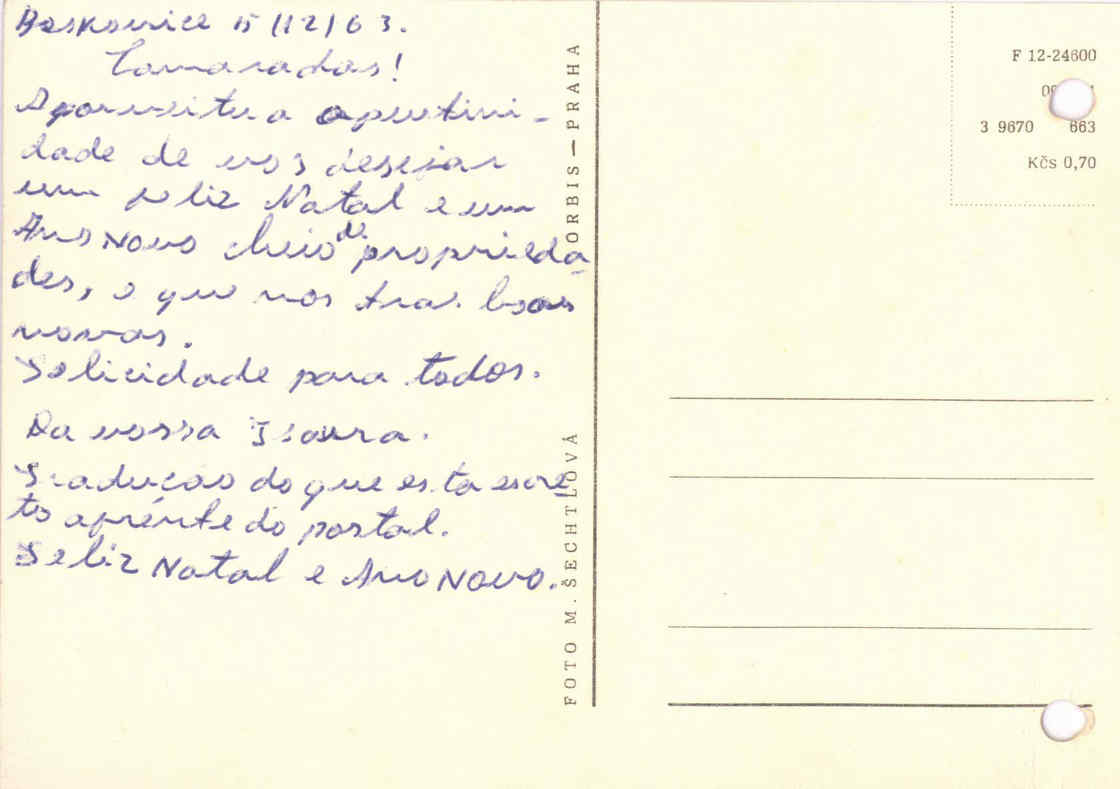 Boskovice 15/12/63.
Camaradas!
Aproveito a oportini-
dade de vos desejar
um feliz Natal e um
Ano Novo cheio de propriedа-
des, o que nos tras boas
novas.
Felicidade para todos.
Da vossa Isaura.
Traduçao do que esta escre-
to afrénte do postal.
Feliz Natal e Ano Novo.
FOTO M. ŠECHTLOVÁ
ORBIS — PRAHA
F 12-24600
3 9670 663
Kčs 0,70